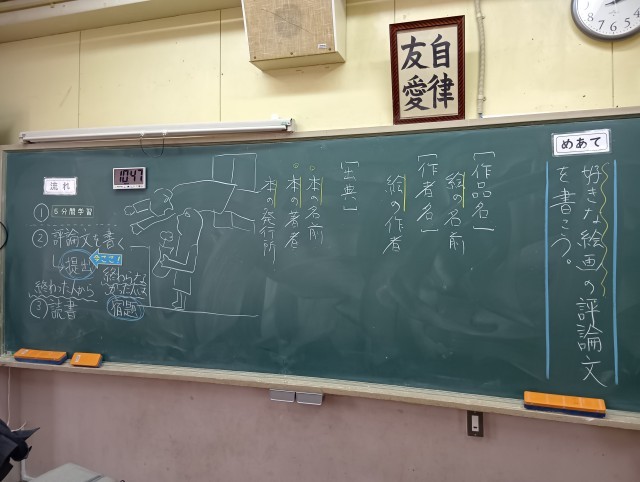 自律
友愛
めあて
好きな絵画の評論文
を書こう。
[作品名]
絵の名前
[作者名]
絵の作者
[出典]
本の名前
本の著者
本の発行所
流れ
10:47
① 5分間学習
② 評論文を書く
↳提出
今ここ!
終わらな
かった人は
宿題
終わった人から
③ 読書